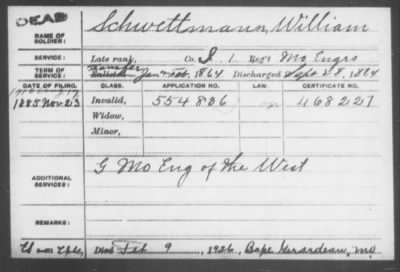 DEAD
NAME OF SOLDIER: Schwettmann, William
SERVICE: Late rank, Co. I, 1 Reg't Mo Engrs
TERM OF SERVICE: Transfer Enlisted Jan Feb, 1864 Discharged Sept 28, 1864
DATE OF FILING. CLASS. APPLICATION NO. LAW. CERTIFICATE NO.
1885 Nov. 23 Invalid, 554826 468227
Widow,
Minor,
ADDITIONAL SERVICES: G Mo Eng of the West
REMARKS:
Died Feb 9, 1926, Cape Girardeau, Mo